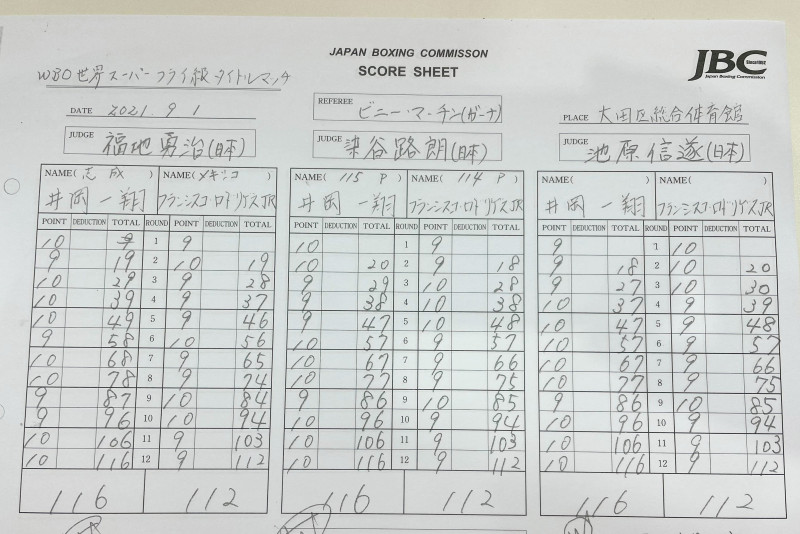 JAPAN BOXING COMMISSON
SCORE SHEET
JBC
Japan Boxing Commission
WBO世界スーパーフライ級タイトルマッチ
DATE 2021 9 1
REFEREE ビニー・マーチン(ガーナ)
PLACE 大田区総合体育館
JUDGE 福地勇治(日本)
JUDGE 染谷路朗(日本)
JUDGE 池原信遂(日本)
NAME(志成) NAME(メキシコ) NAME(115 P) NAME(114 P) NAME( ) NAME( )
井岡一翔 フランシスコ・ロドリゲスJR 井岡一翔 フランシスコ・ロドリゲスJR 井岡一翔 フランシスコ・ロドリゲスJR
POINT DEDUCTION TOTAL ROUND POINT DEDUCTION TOTAL POINT DEDUCTION TOTAL ROUND POINT DEDUCTION TOTAL POINT DEDUCTION TOTAL ROUND POINT DEDUCTION TOTAL
10 1 9 10 1 9 9 1 10
9 19 2 10 19 10 20 2 9 18 9 18 2 10 20
10 29 3 9 28 9 29 3 10 28 9 27 3 10 30
10 39 4 9 37 9 38 4 10 38 10 37 4 9 39
10 49 5 9 46 9 47 5 10 48 10 47 5 9 48
9 58 6 10 56 10 57 6 9 57 10 57 6 9 57
10 68 7 9 65 10 67 7 9 66 10 67 7 9 66
10 78 8 9 74 10 77 8 9 75 10 77 8 9 75
9 87 9 10 84 9 86 9 10 85 9 86 9 10 85
9 96 10 10 94 10 96 10 9 94 10 96 10 9 94
10 106 11 9 103 10 106 11 9 103 10 106 11 9 103
10 116 12 9 112 10 116 12 9 112 10 116 12 9 112
116 112 116 112 116 112